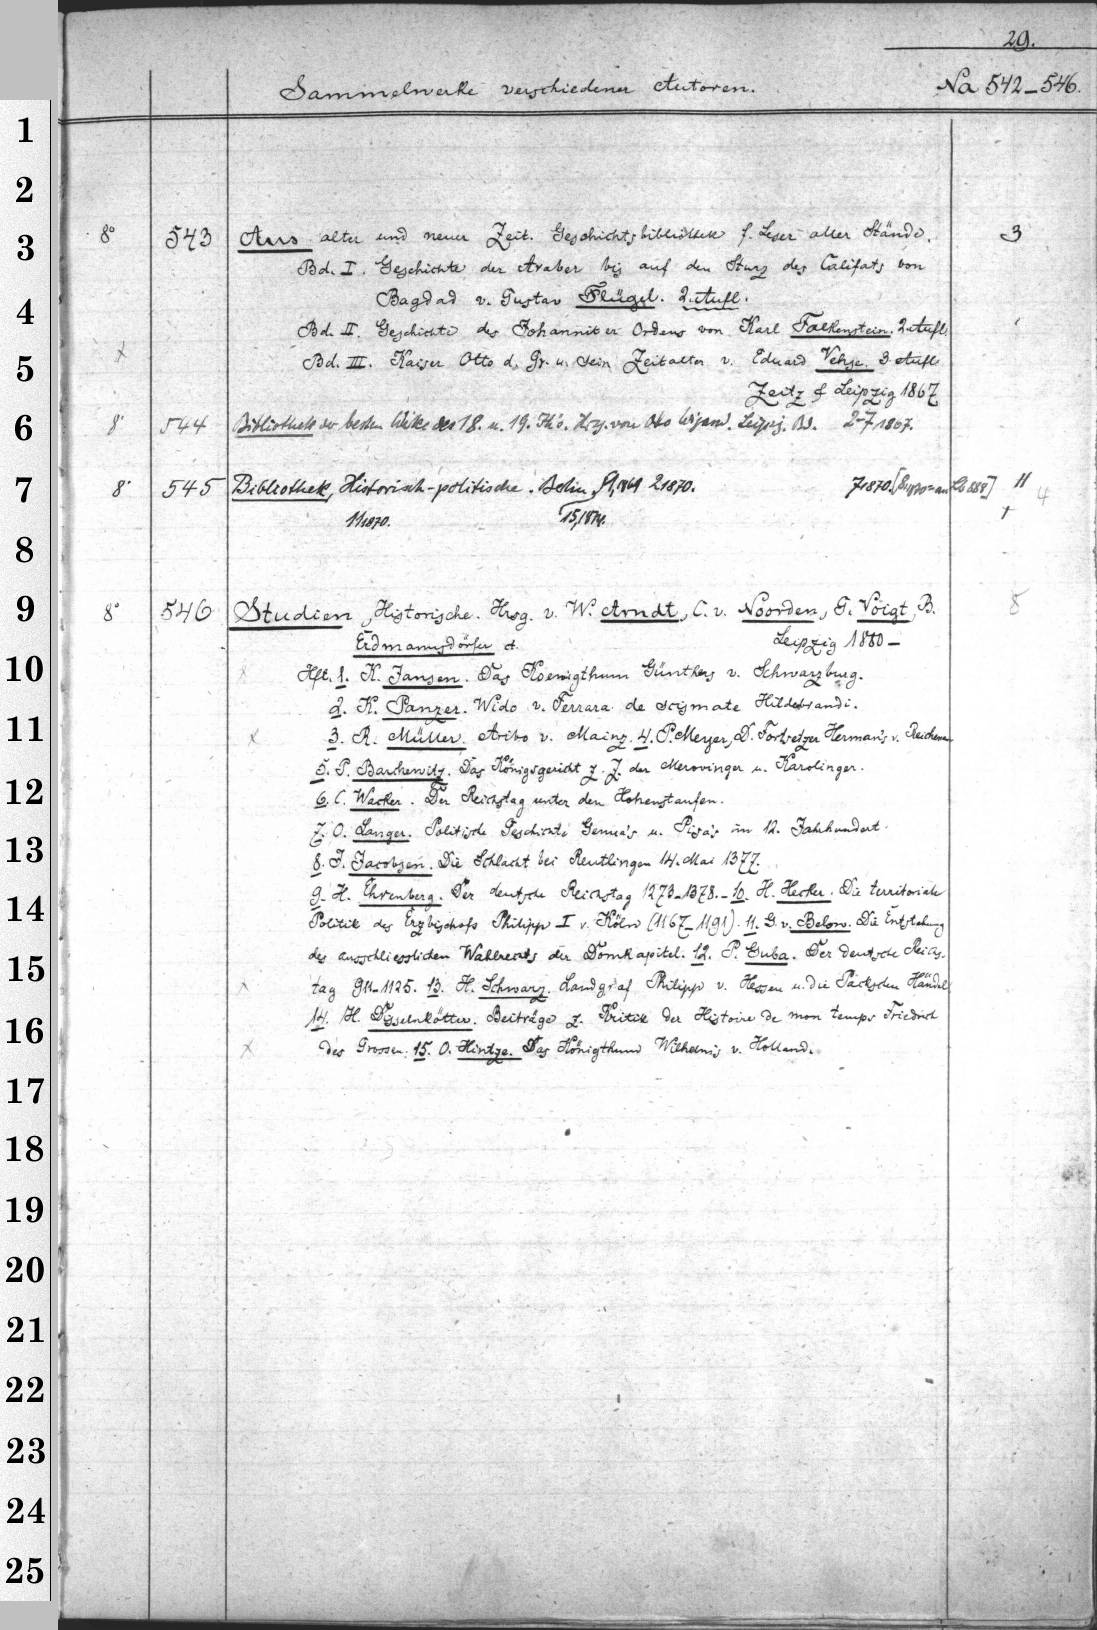 29.
Sammelwerke verschiedener Autoren. Na 542_546.
1
2
3
4
5
6
7
8
9
10
11
12
13
14
15
16
17
18
19
20
21
22
23
24
25
8° 543 Aus alter und neuer Zeit. Geschichtsbibliothek f. Leser aller Stände. 3
Bd. I. Geschichte der Araber bis auf den Sturz des Califats von
Bagdad v. Gustav Flügel. 2. Aufl.
Bd. II. Geschichte des Johanniter Ordens von Karl Falkenstein. 2. Aufl.
x Bd. III. Kaiser Otto d. Gr. u. sein Zeitalter v. Eduard Vehse. 3 Aufl.
Zeitz & Leipzig 1867
8° 544 Bibliothek der besten Werke des 18. u. 19. Jh's. Hrsg. von Otto Wigand. Leipzig. Bd. 2-7 1867.
8° 545 Bibliothek, Historisch-politische. Berlin 1869 2 1870. 7 1870. 11 4
11 1870. 15, 1874. +
8° 546 Studien, Historische. Hrsg. v. W. Arndt, C. v. Noorden, G. Voigt, B. 8
Erdmannsdörfer et Leipzig 1880_
x Hft. 1. K. Jansen. Das Koenigthum Günthers v. Schwarzburg.
2. K. Panzer. Wido v. Ferrara de scismate Hildebrandi.
x 3. R. Müller. Aribo v. Mainz. 4. P. Meyer, D. Fortsetzer Herman's v. Reichenau
5. P. Barchewitz. Das Königsgericht z. Z. der Merovinger u. Karolinger.
6. C. Wacker. Der Reichstag unter den Hohenstaufen.
7. O. Langer. Politische Geschichte Genua's u. Pisa's im 12. Jahrhundert.
8. J. Jacobsen. Die Schlacht bei Reutlingen 14. Mai 1377.
9. H. Ehrenberg. Der deutsche Reichstag 1273_1378._ 10. H. Hecker. Die territoriale
Politik des Erzbischofs Philipp I v. Köln (1167_1191). 11. G. v. Below. Die Entstehung
des ausschliesslichen Wahlrechts der Domkapitel. 12. P. Guba. Der deutsche Reichs-
x tag 911-1125. 13. H. Schwarz. Landgraf Philipp v. Hessen u. die Packschen Händel
14. H. Disselnkötter. Beiträge z. Kritik der Histoire de mon temps Friedrich
x des Grossen. 15. O. Hintze. Das Königthum Wilhelms v. Holland.